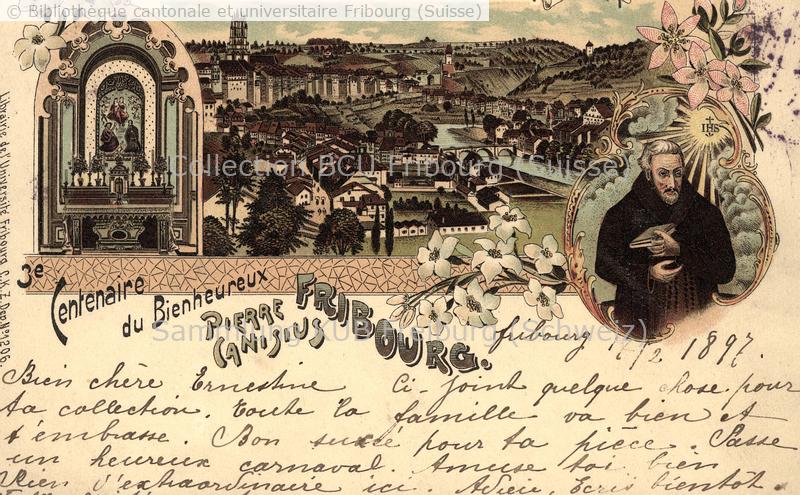 © Bibliothèque cantonale et universitaire Fribourg (Suisse)
IHS
Collection BCU Fribourg (Suisse)
Librairie de l'Université Fribourg. C.K.Z. Dep. № 1206.
3e Centenaire
du Bienheureux
PIERRE
CANISIUS
FRIBOURG.
Sammlung KUB Freiburg (Schweiz)
Fribourg 1897.
Bien chère Ernestine Ci-joint quelque chose pour
ta collection. Toute la famille va bien et
t'embrasse. Bon succé pour ta pièce. Passe
un heureux carnaval. Amuse toi bien
Rien d'extraordinaire ici. Adieu, Ecris bientôt.